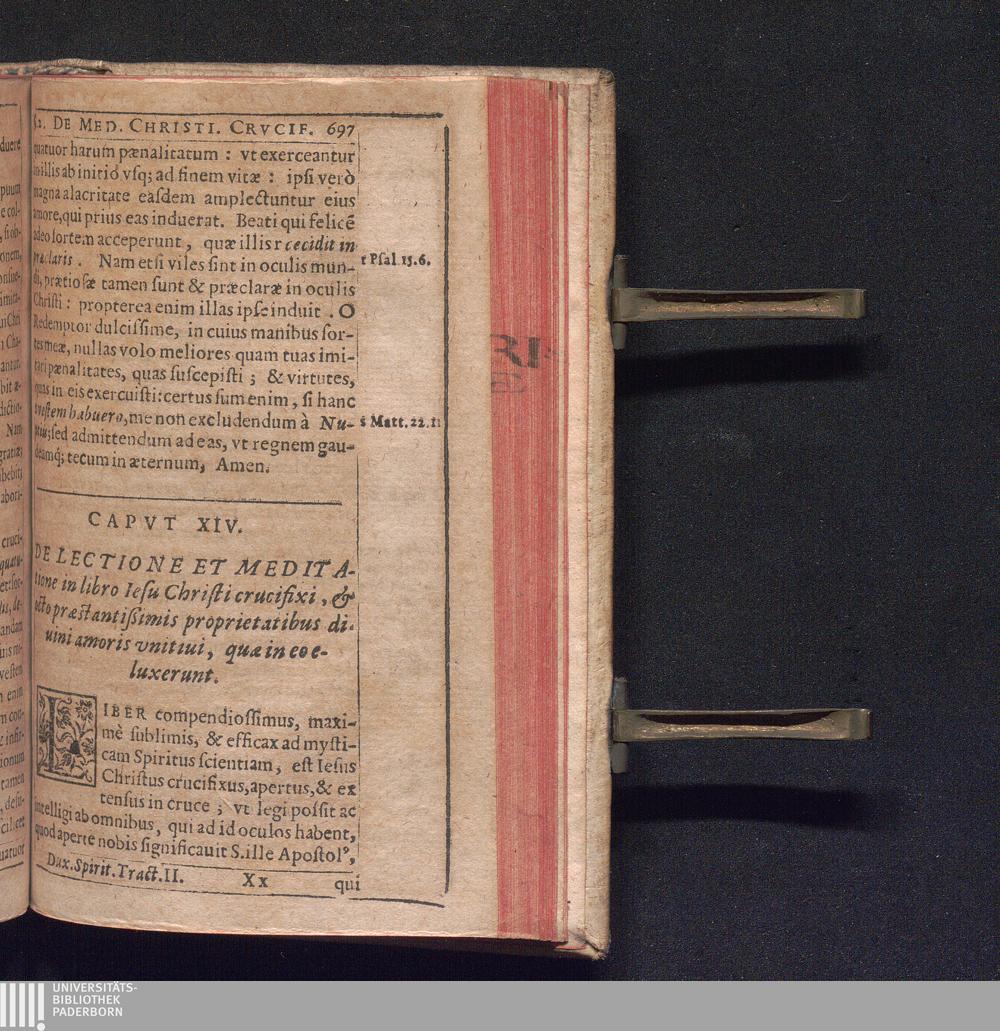 DE MED. CHRISTI. CRVCIF. 697
quatuor harum pænalitatum : vt exerceantur
in illis ab initio vſq; ad finem vitæ : ipſi verò
magna alacritate eaſdem amplectuntur eius
amore, qui prius eas induerat. Beati qui felicẽ
adeo ſortem acceperunt, quæ illis r cecidit in
præclaris. Nam etſi viles ſint in oculis mun-
r Pſal 15.6.
di, prætioſæ tamen ſunt & præclaræ in oculis
Chriſti : propterea enim illas ipſe induit . O
Redemptor dulciſſime, in cuius manibus ſor-
tes meæ, nullas volo meliores quam tuas imi-
tari pænalitates, quas ſuſcepiſti ; & virtutes,
quas in eis exercuiſti: certus ſum enim, ſi hanc
veſtem habuero, me non excludendum à Nu-
s Matt. 22.11
ptiis; ſed admittendum ad eas, vt regnem gau-
deamq́; tecum in æternum, Amen.
CAPVT XIV.
DE LECTIONE ET MEDITA-
tione in libro Ieſu Chriſti crucifixi, &
octo præſtantiſſimis proprietatibus di-
uini amoris vnitiui, quæ in eo e-
luxerunt.
LIBER compendioſſimus, maxi-
mè ſublimis, & efficax ad myſti-
cam Spiritus ſcientiam, eſt Ieſus
Chriſtus crucifixus, apertus, & ex
tenſus in cruce ; vt legi poſſit ac
intelligi ab omnibus, qui ad id oculos habent,
quod aperte nobis ſignificauit S. ille Apoſtolꝰ,
Dux. Spirit. Tract. II. Xx qui
duere
puum
e col-
, ſi ob-
onem,
imita-
antur.
bit æ-
dictio-
Nam
gratiæ;
abori-
cruci-
quatu-
andam
veſten
enim
m con-
ionum
tamen
, deſu-
ſcilicet
uatuor
UNIVERSITÄTS-
BIBLIOTHEK
PADERBORN